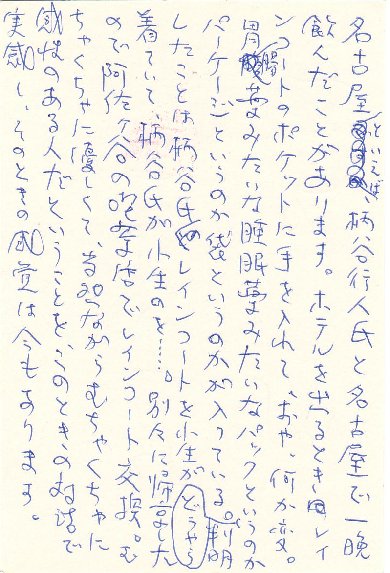 名古屋といえば、柄谷行人氏と名古屋で一晩
飲んだことがあります。ホテルを出るとき、レイ
ンコートのポケットに手を入れて、おや、何か変。
胃腸薬みたいな睡眠薬みたいなパックというのか
パーケージというのか袋というのかが入っている。判明
したことは、柄谷氏のレインコートを小生がどうやら
着ていて、柄谷氏が小生のを……。別々に帰京した
ので阿佐ヶ谷の喫茶店でレインコート交換。む
ちゃくちゃに優しくて当然ながらむちゃくちゃに
感性のある人だということを、このときの対話で
実感し、そのときの感覚は今もあります。